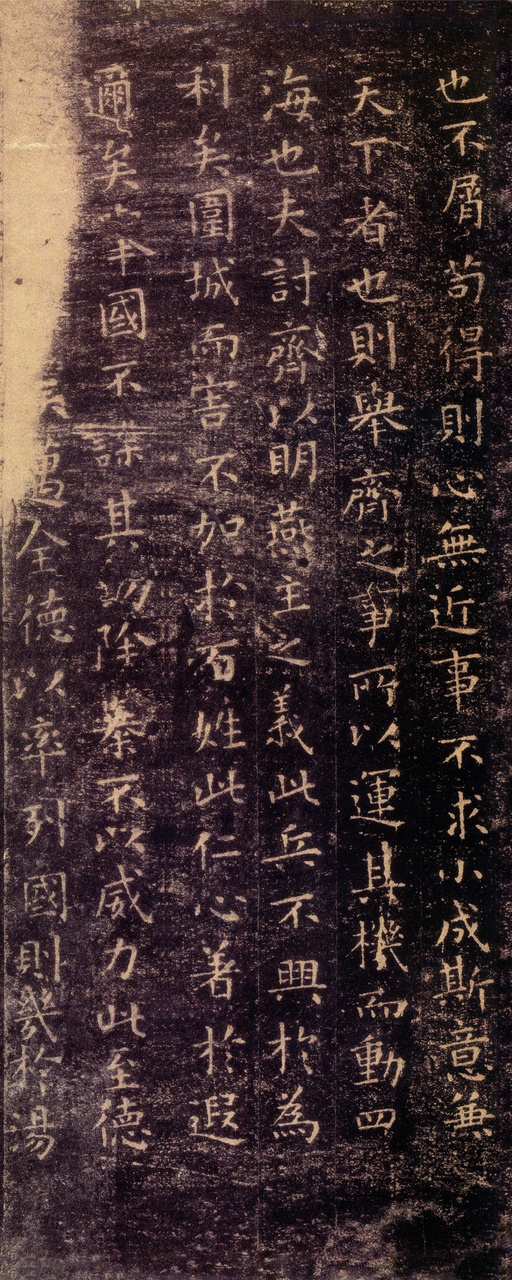 也不屑苟得則心無近事不求小成斯意兼
天下者也則舉齊之事所以運其機而動四
海也夫討齊以明燕主之義此兵不興於為
利矣圍城而害不加於百姓此仁心著於遐
邇矣舉國不謀其功除暴不以威力此至德
邁全德以率列國則幾於湯